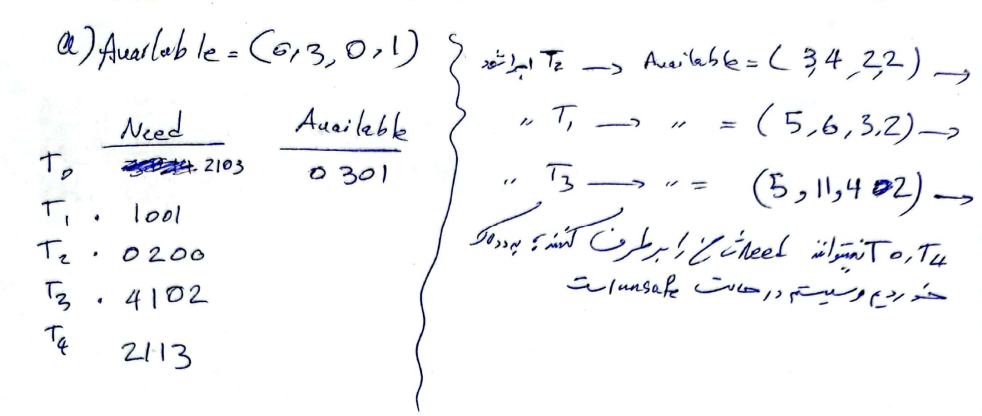 a) Available = (0,3,0,1)
Need Available
T0 2103 0301
T1 . 1001
T2 . 0200
T3 . 4102
T4 2113
T2 اجرا شود → Available = (3,4,2,2) →
" T1 → " = (5,6,3,2) →
" T3 → " = (5,11,4 02) →
T0,T4 نمیتوانند Need خ را برطرف کنند؛ به ددلاک
خوردیم و سیستم در حالت unsafe است